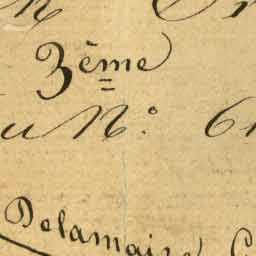 3ème
u N.° 6
Delamaire